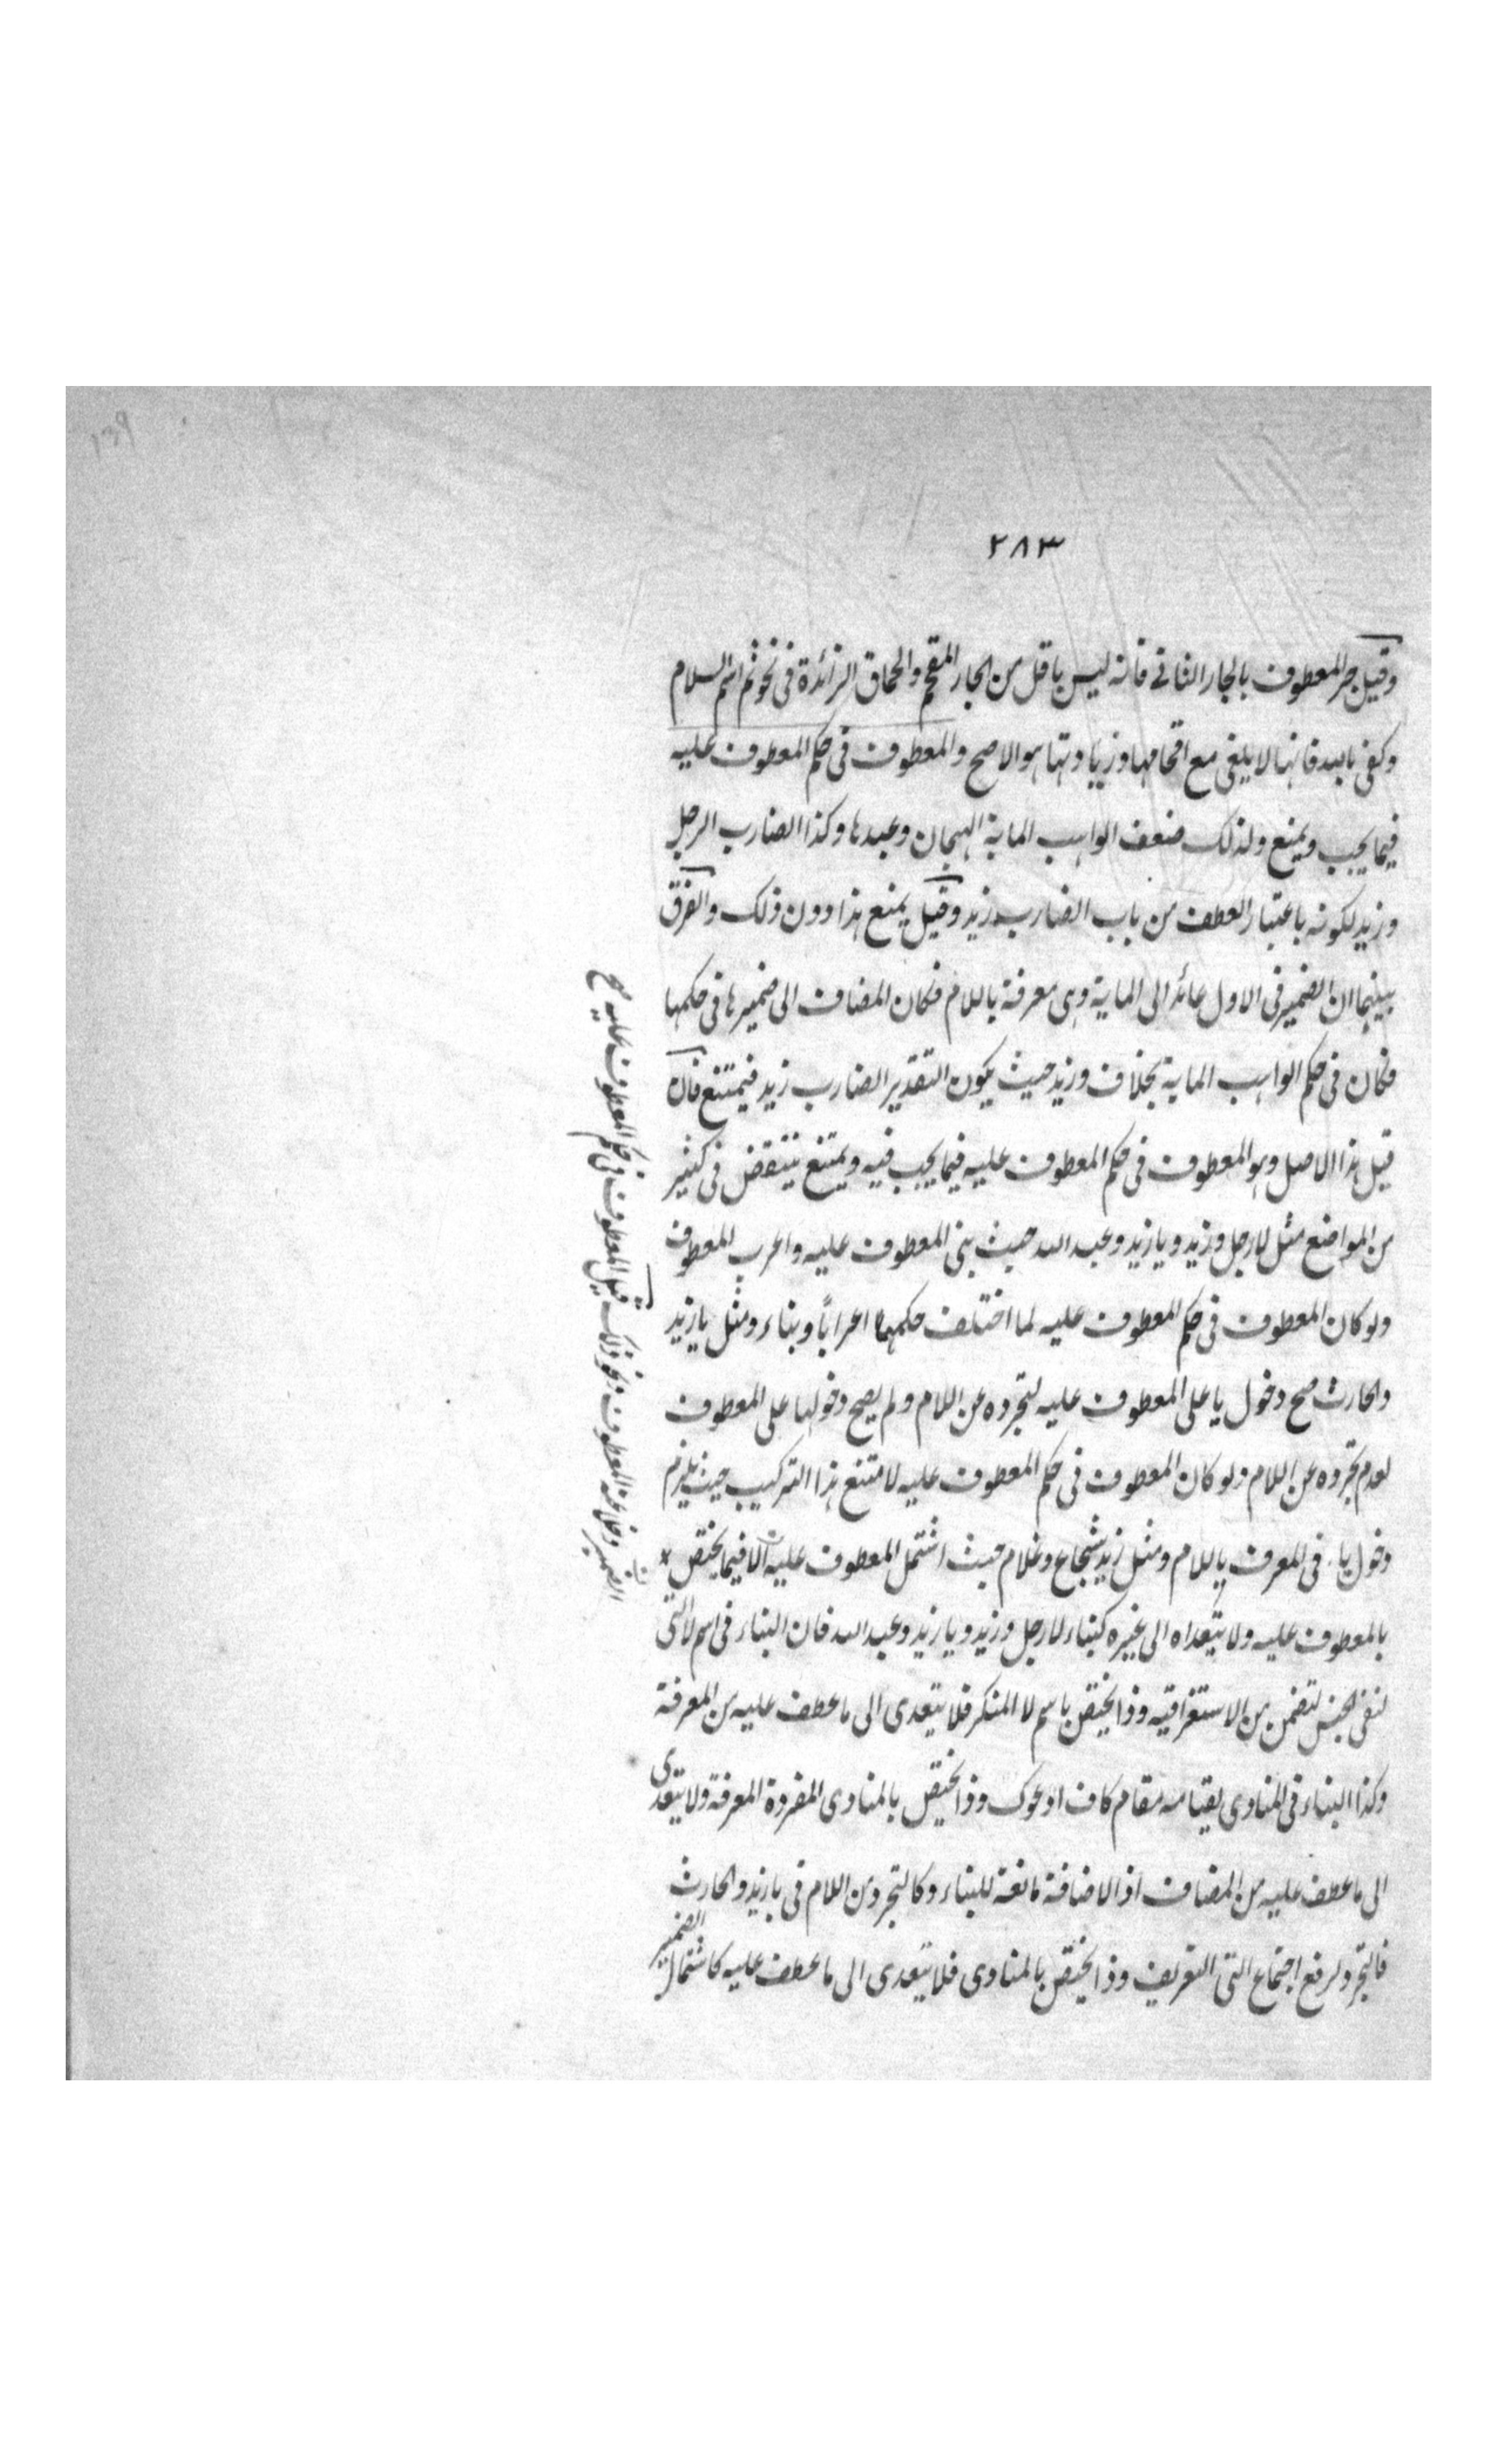 ٢٨٣
وقيل جر المعطوف بالجار الثاني فانه ليس باقل من الجار المقحم والحاق الزائدة في نحو ثم اسم السلام
وكفى بالله فانها لا يلغى مع اقحامها وزيادتها هو الاصح والمعطوف في حكم المعطوف عليه
فيما يجب ويمنع ولذلك ضعف الواهب الماية الهجان وعبدها وكذا الضارب الرجل
وزيد لكونه باعتبار العطف من باب الضارب زيد وقيل يمنع هذا دون ذلك والفرق
بينهما ان الضمير في الاول عائد الى الماية وهى معرفة باللام فكان المضاف الى ضميرها في حكمها
فكان في حكم الواهب الماية بخلاف وزيد حيث يكون التقدير الضارب زيد فيمتنع فان
قيل هذا الاصل وهو المعطوف في حكم المعطوف عليه فيما يجب فيه ويمتنع ينتقض في كثير
من المواضع مثل لا رجل وزيد ويا زيد وعبد الله حيث بنى المعطوف عليه واعرب المعطوف
ولو كان المعطوف في حكم المعطوف عليه لما اختلف حكمهما اعراباً وبناء ومثل يا زيد
والحارث صح دخول يا على المعطوف عليه لتجرده عن اللام ولم يصح دخولها على المعطوف
لعدم تجرده عن اللام ولو كان المعطوف في حكم المعطوف عليه لامتنع هذا التركيب حيث يلزم
دخول ياء في المعرف باللام ومثل زيد شجاع وغلام حيث اشتمل المعطوف عليه الا فيما يختص
بالمعطوف عليه ولا يتعداه الى غيره كبناء لا رجل وزيد ويا زيد وعبد الله فان البناء في اسم لا التى
لنفى الجنس لتضمن من الاستغراقيه وذا يختص باسم لا المنكر فلا يتعدى الى ما عطف عليه من المعرفة
وكذا البناء في المنادى لقيامه مقام كاف ادعوك وذا يختص بالمنادى المفردة المعرفة ولا يتعدى
الى ما عطف عليه من المضاف اذ الاضافة مانعة للبناء وكالتجرد من اللام في يا زيد والحارث
فالتجرد لرفع اجتماع التى التعريف وذا يختص بالمنادى فلا يتعدى الى ما عطف عليه كاشتمال الضمير
الضمير وخلا عنه المعطوف ونحو ذلك قيل المعطوف في حكم المعطوف عليه صح